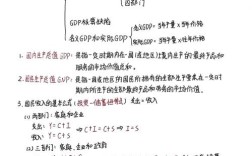 (四部门)
GDP核算缺陷
名义GDP和实际GDP
名义GDP：当年产量×当年价格
实际GDP：当年产量×
1. 国内生产总值GDP：是指一定时期内在一国(或地区)境内生产的全部最终产品和
服务的市场价值总和。
2. 国民生产总值GNP：是指一国或地区的国民所拥有的全部生产要素在一定时期
内所生产的最终产品的市场价值。
3. 国民收入的基本公式(投资—储蓄恒等式) 支出=收入
(1) 两部门：家庭、企业
支出：Y=C+I
收入：Y=C+S
⇒ C+I=C+S ⇒ I=S
(2) 三部门：家庭、企业和政府